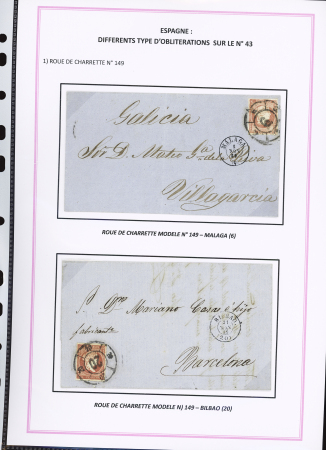 ESPAGNE :
DIFFERENTS TYPE D'OBLITERATIONS SUR LE N° 43
1) ROUE DE CHARRETTE N° 149
Galicia
Sor D. Mateo Ga de la Riva
Villagarcia
MALAGA
ROUE DE CHARRETTE MODELE N° 149 – MALAGA (6)
S. Dn Mariano Casas é hijo
fabricante
BILBAO
Barcelona
ROUE DE CHARRETTE MODELE N) 149 – BILBAO (20)